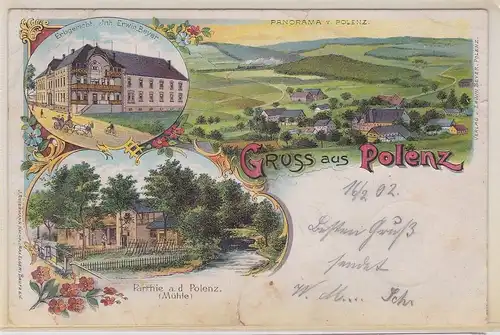 Erbgericht. Inh. Erwin Beyer.
PANORAMA v. POLENZ.
GRUSS aus POLENZ
Parthie a. d. Polenz.
(Mühle)
16/2 02
Besten Gruß
sendet